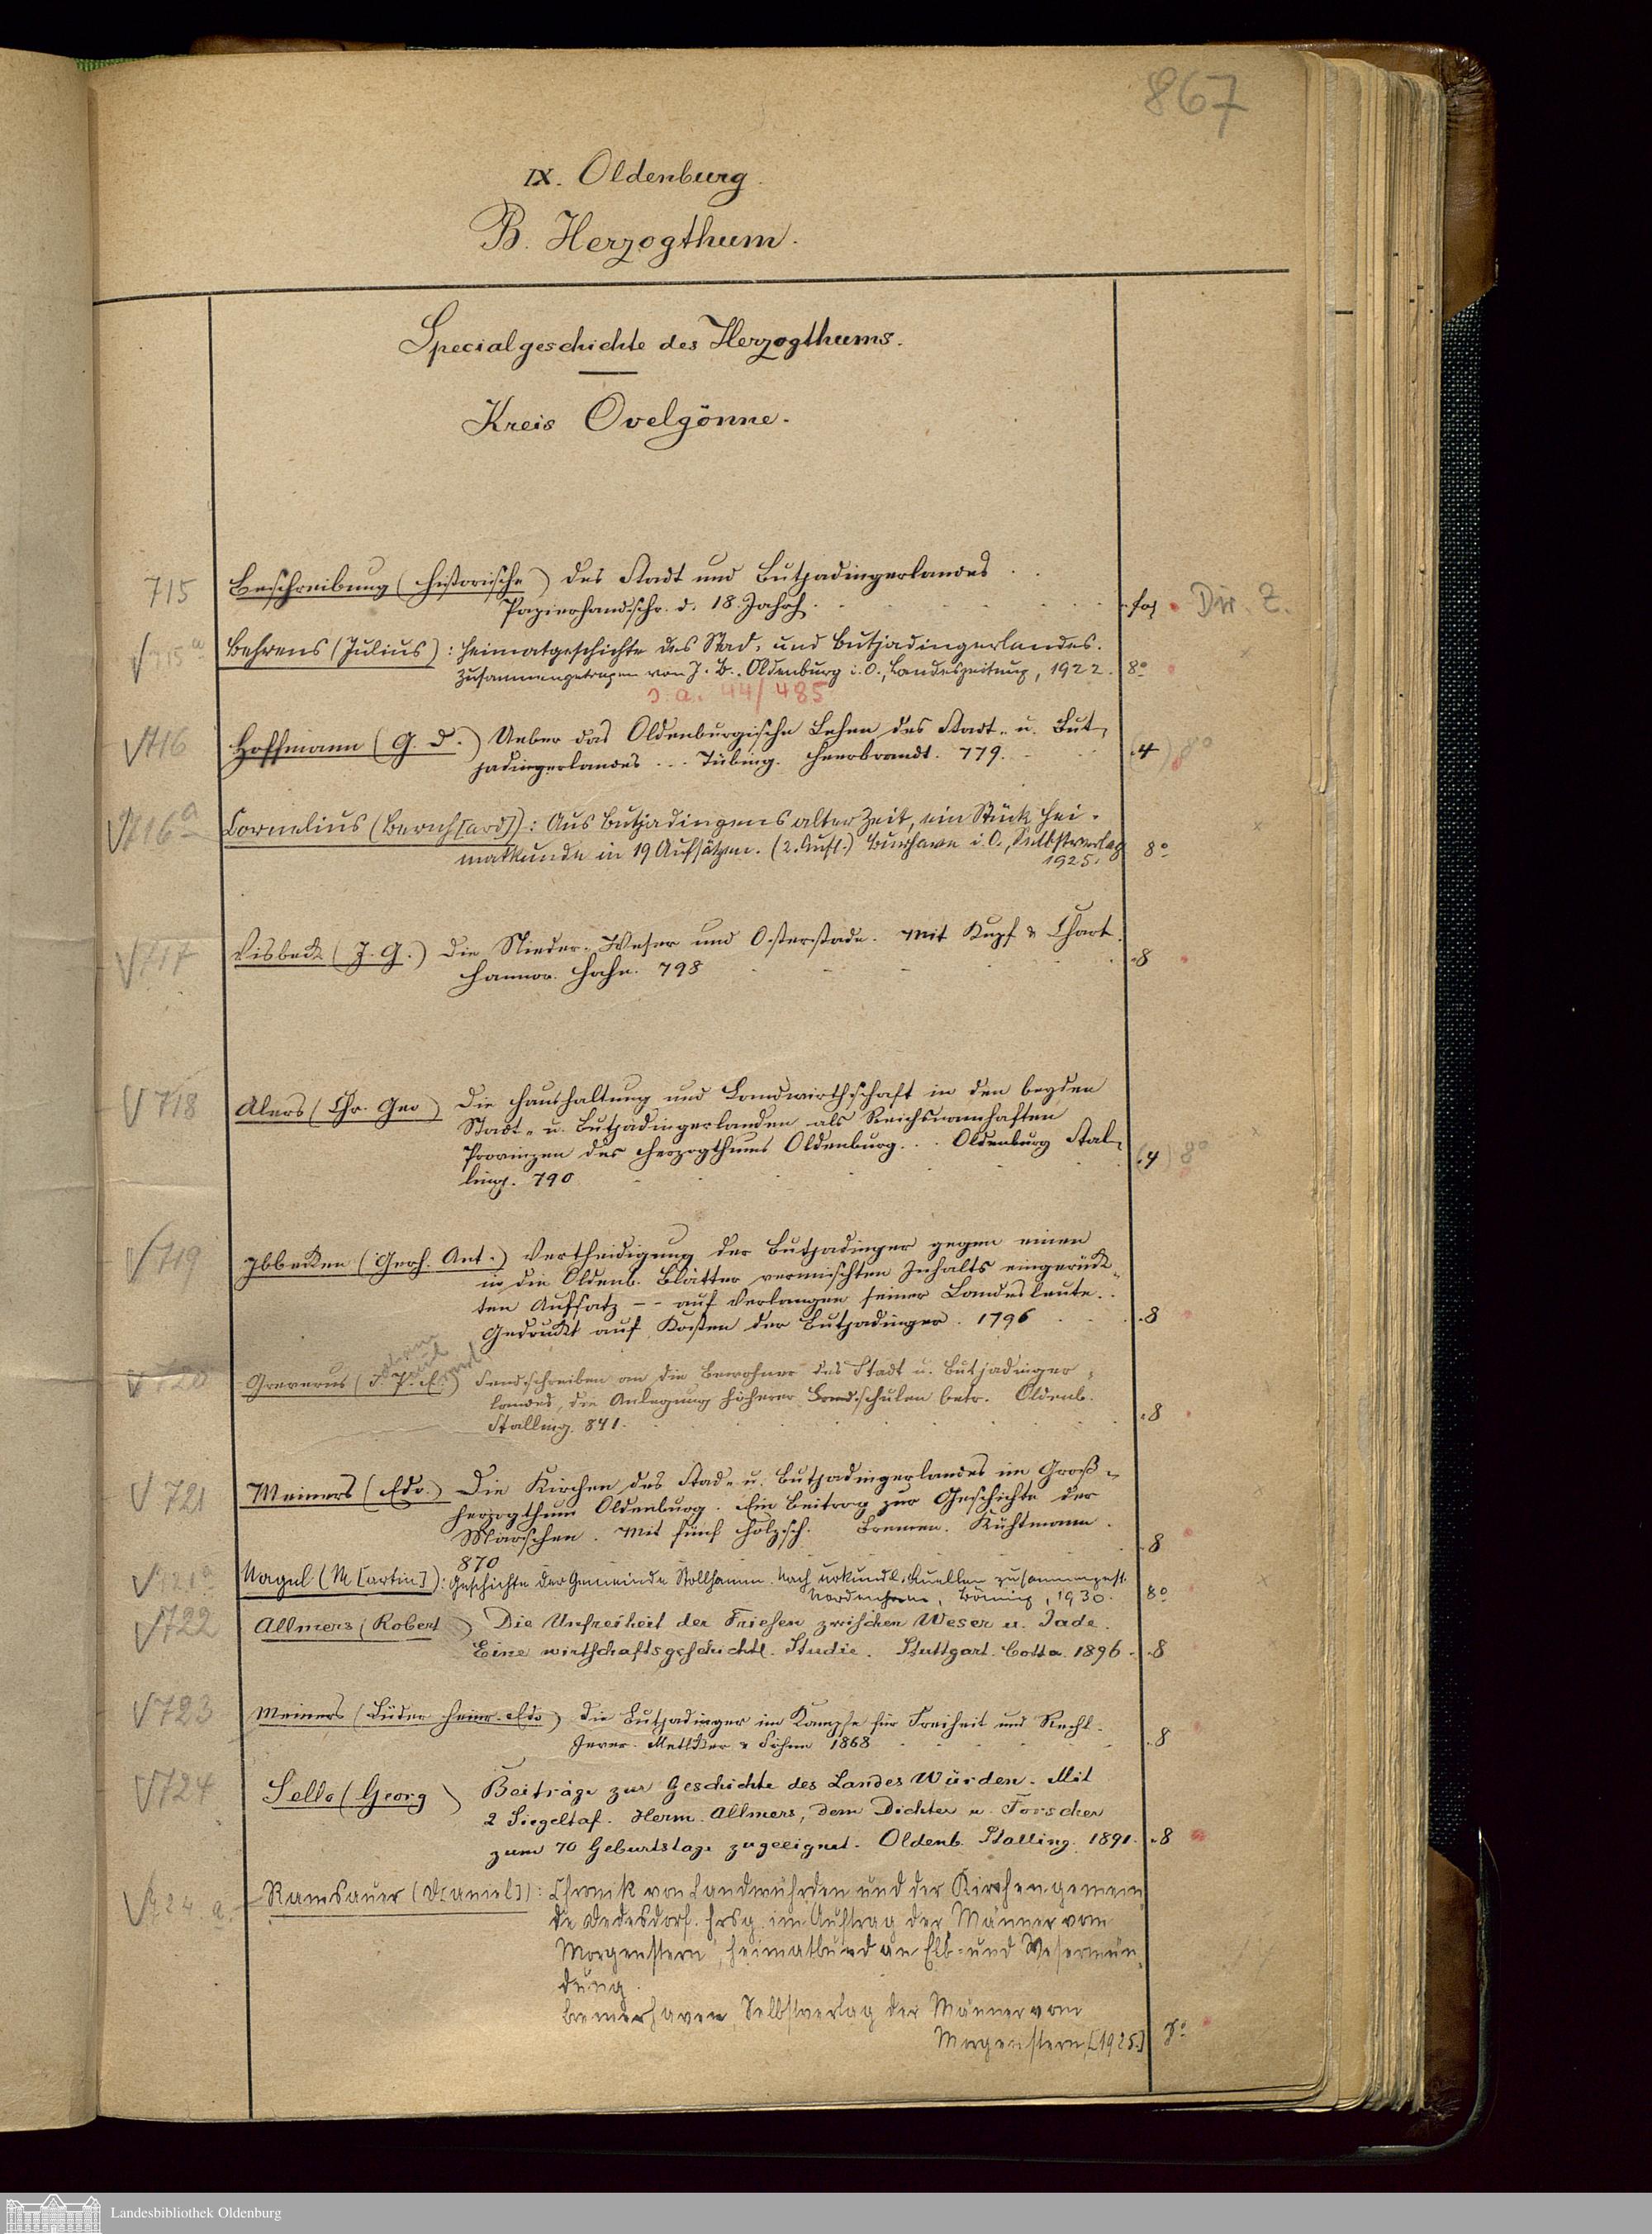 867
IX. Oldenburg.
B. Herzogthum.
Specialgeschichte des Herzogthums.
Kreis Ovelgönne.
715 Beschreibung (historische) des Stadt und Butjadingerlandes . .
Papierhandschr. d. 18. Jahrh. fol Dir. Z.
715a Behrens (Julius): Heimatgeschichte des Stad- und Butjadingerlandes.
Zusammengetragen von J. B. Oldenburg i. O., Landeszeitung, 1922. 8°
s. a. 44/485
716 Hoffmann (G. D.) Ueber das Oldenburgische Lehen des Stadt- u. But-
jadingerlandes ... Tübing. Heerbrandt. 779. (4) 8°
716a Cornelius (Bernh[ard]): Aus Butjadingens alter Zeit, ein Stück Hei-
matkunde in 19 Aufsätzen. (2. Aufl.) Burhave i. O., Selbstverlag
1925. 8°
717 Visbeck (J. G.) Die Nieder-Weser und Osterstade. Mit Kupf & Chart.
Hannov. Hahn. 798 8
718 Alers (Chr. Geo) Die Haushaltung und Landwirthschaft in den beyden
Stadt- u. Butjadingerlanden als Reichsnamhaften
Provinzen des Herzogthums Oldenburg... Oldenburg Stal-
ling. 790 (4) 8°
719 Ibbeken (Gerh. Ant.) Vertheidigung der Butjadinger gegen einen
in die Oldenb. Blätter vermischten Inhalts eingerück-
ten Aufsatz -- auf Verlangen seiner Landesleute..
Gedruckt auf Kosten der Butjadinger. 1796 8
720 Greverus (J. P. E.) Sendschreiben an die Bewohner des Stadt u. Butjadinger-
landes, die Anlegung höherer Landschulen betr. Oldenb.
Stalling. 841. 8
721 Meiners (Edo.) Die Kirchen des Stad- u. Butjadingerlandes im Groß-
herzogthum Oldenburg. Ein Beitrag zur Geschichte der
Marschen. Mit fünf Holzsch. Bremen. Kühtmann.
870 8
721a Nagel (M[artin]): Geschichte der Gemeinde Stollhamm. Nach urkundl. Quellen zusammengest.
Nordenham, Böning, 1930. 8°
722 Allmers (Robert) Die Unfreiheit der Friesen zwischen Weser u. Jade.
Eine wirthschaftsgeschichtl. Studie. Stuttgart. Cotta. 1896. 8
723 Meiners (Lüder Heinr. Edo) Die Butjadinger im Kampfe für Freiheit und Recht.
Jever. Mettcker & Söhne 1868 8
724 Sello (Georg) Beiträge zur Geschichte des Landes Würden. Mit
2 Siegeltaf. Herm. Allmers, dem Dichter u. Forscher
zum 70 Geburtstage zugeeignet. Oldenb. Stalling. 1891. 8
724 a. Ramsauer (D[aniel]): Chronik von Landwührden und der Kirchengemein-
de Dedesdorf. Hrsg. im Auftrag der Männer vom
Morgenstern, Heimatbund an Elb- und Wesermün-
dung.
Bremerhaven, Selbstverlag der Männer vom
Morgenstern, [1925.] 8°
Landesbibliothek Oldenburg